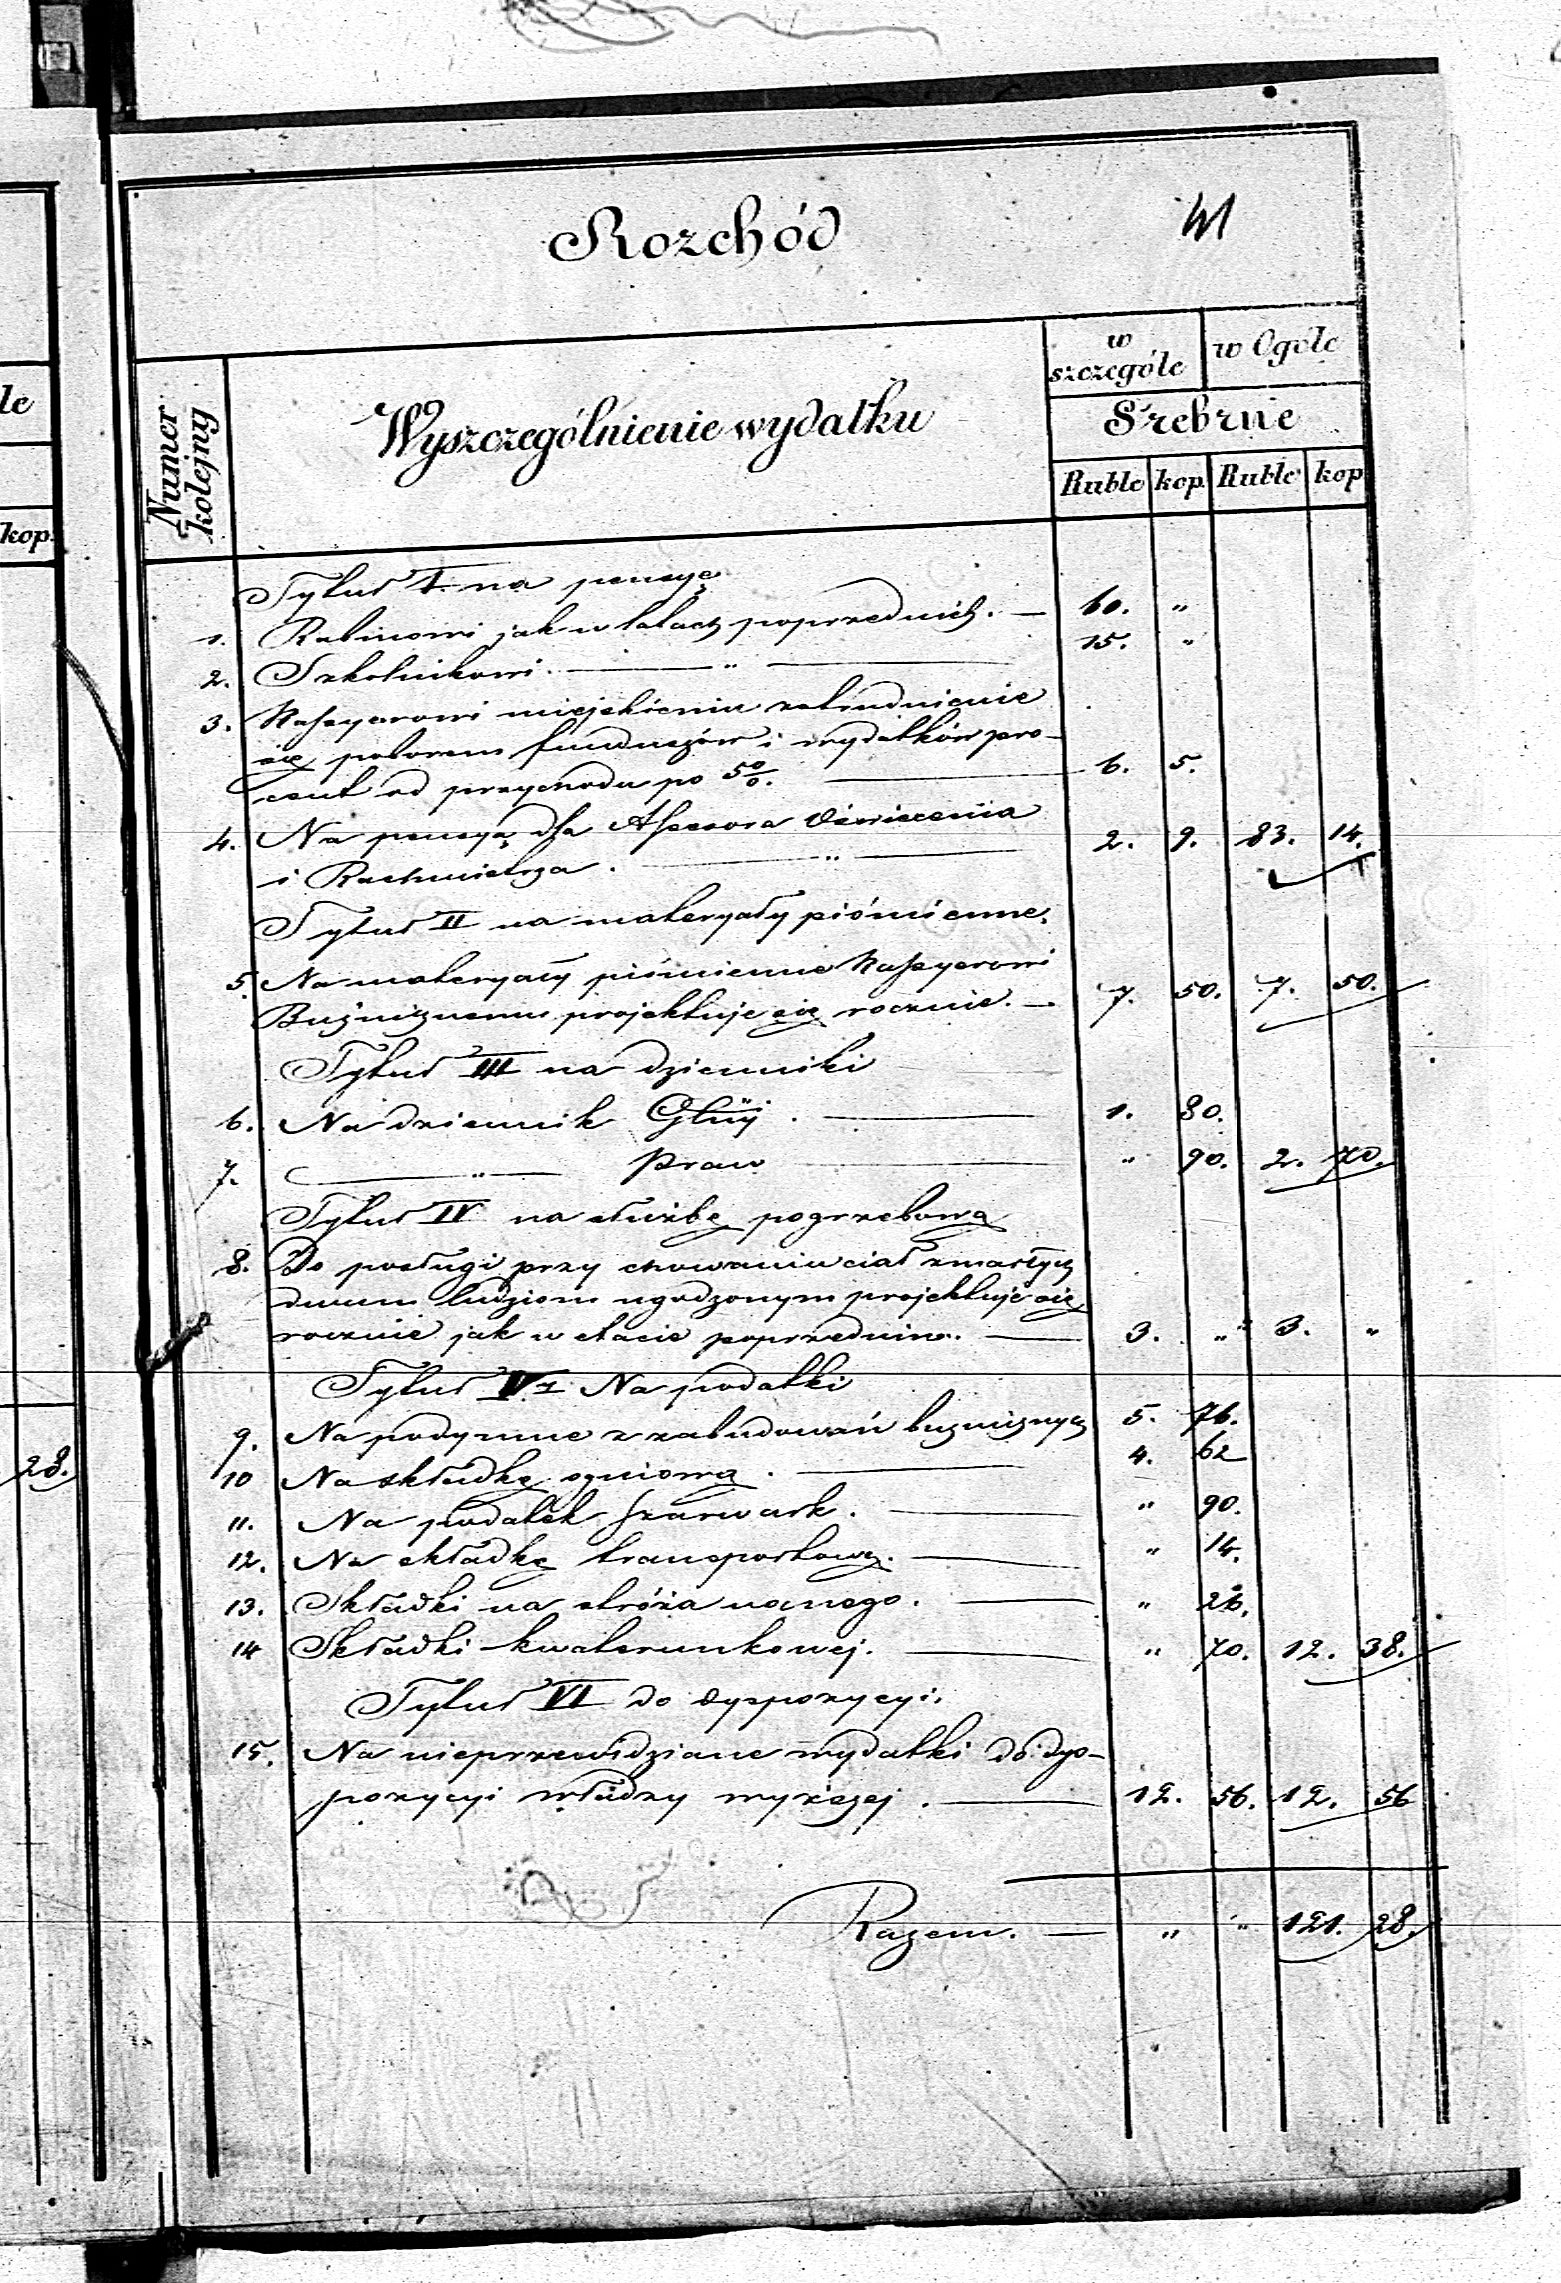 le
kop.
28.
Rozchód
41
Numer kolejny
Wyszczególnienie wydatku
w szczególe
w Ogóle
Srebrne
Ruble kop Ruble kop
Tytuł I. na pensyę
1. Rabinowi jak w latach poprzednich. — 60. "
2. Szkolnikowi — " — 15. "
3. Kassyerowi miejskiemu zatrudnienie
się poborem funduszów i wydatków pro-
cent od przychodu po 5%. — 6. 5.
4. Na pensyą dla Assesora
i Rachmistrza. — " — 2. 9. 83. 14.
Tytuł II na materyały piśmienne.
5. Na materyały piśmienne Kassyerowi
Bużniznemu projektuje się rocznie. — 7. 50. 7. 50.
Tytuł III na dzienniki
6. Na dziennik Głny. — 1. 80.
7. — " — Praw — " 90. 2. 70.
Tytuł IV na służbę pogrzebową
8. Do posługi przy chowaniu ciał zmarłych
dwum ludziom ugodzonym projektuje się
rocznie jak w etacie poprzednim. — 3. " 3. "
Tytuł V Na podatki
9. Na podymne z zabudowań bużniznych 5. 76.
10 Na składkę ogniową. — 4. 62
11. Na podatek szarwark. — " 90.
12. Na składkę transportową. — " 14.
13. Składki na stróża nocnego. — " 26.
14 Składki kwaterunkowej. — " 70. 12. 38.
Tytuł VI do dyspozycyi.
15. Na nieprzewidziane wydatki do dys-
pozycyi władzy wyższej. — 12. 56. 12. 56
Razem. — " " 121. 28.